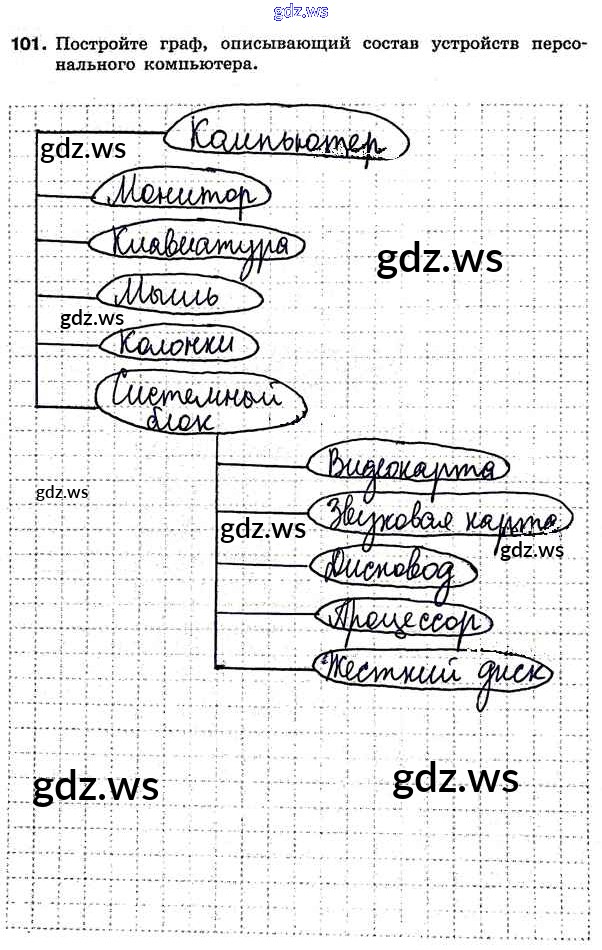 gdz.ws
101. Постройте граф, описывающий состав устройств персо-
нального компьютера.
Компьютер
gdz.ws
Монитор
Клавиатура
gdz.ws
Мышь
gdz.ws
Колонки
Системный
блок
Видеокарта
gdz.ws
Звуковая карта
gdz.ws
gdz.ws
Дисковод
Процессор
Жесткий диск
gdz.ws
gdz.ws